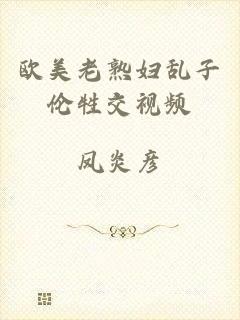 欧美老熟妇乱子
伦牲交视频
凤炎彦